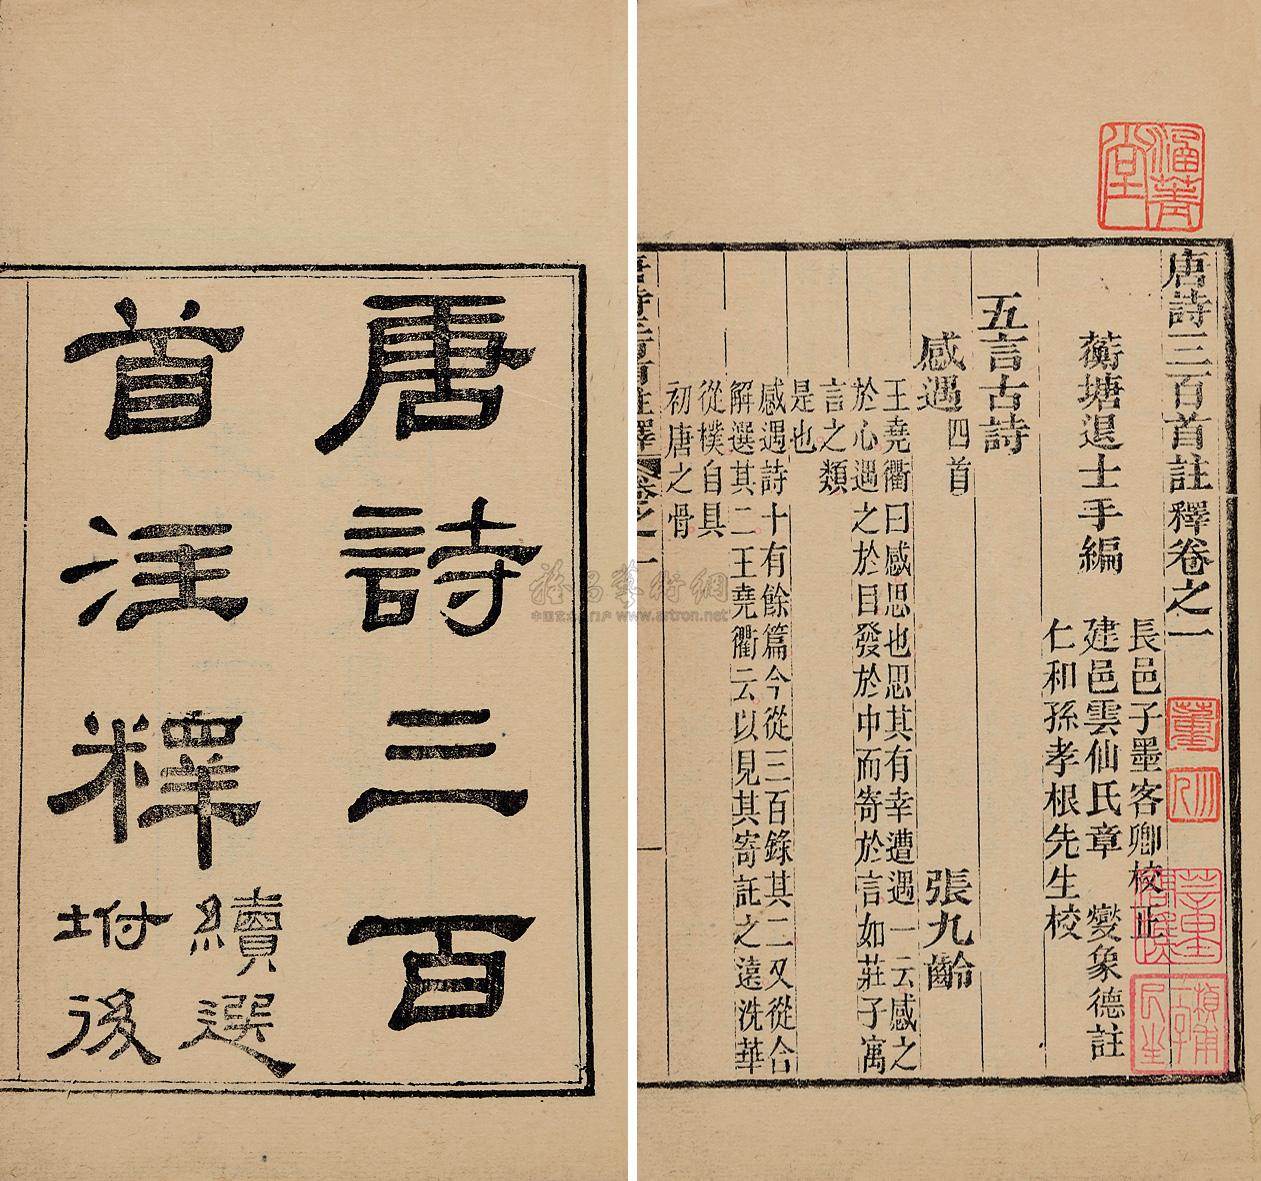 唐詩三百
首注釋
續選
坿後
唐詩三百首註釋卷之一
長邑子墨客卿校正
蘅塘退士手編
建邑雲仙氏章 燮象德註
仁和孫孝根先生校
五言古詩
感遇四首 張九齡
王堯衢曰感思也思其有幸遭遇一云感之
於心遇之於目發於中而寄於言如莊子寓
言之類
是也
感遇詩十有餘篇今從三百錄其二又從合
解選其二王堯衢云以見其寄託之遠洗華
從樸自具
初唐之骨
唐詩三百首註釋 卷之一
一
董
雅昌藝術網
中国艺术品门户 www.artron.net